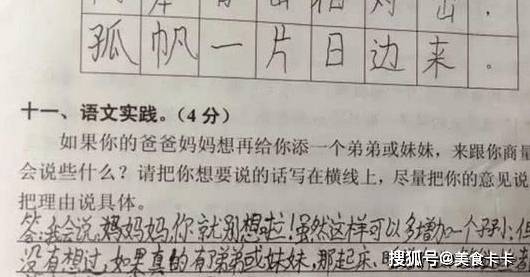 两岸青山相对出，
孤帆一片日边来。
十一、语文实践。（4分）
如果你的爸爸妈妈想再给你添一个弟弟或妹妹，来跟你商量
会说些什么？请把你想要说的话写在横线上，尽量把你的意见说
把理由说具体。
答：我会说，妈妈妈，你就别想啦！虽然这样可以多增加一个孩子，但
没有想过，如果真的有弟弟或妹妹，那起
搜狐号@美食卡卡